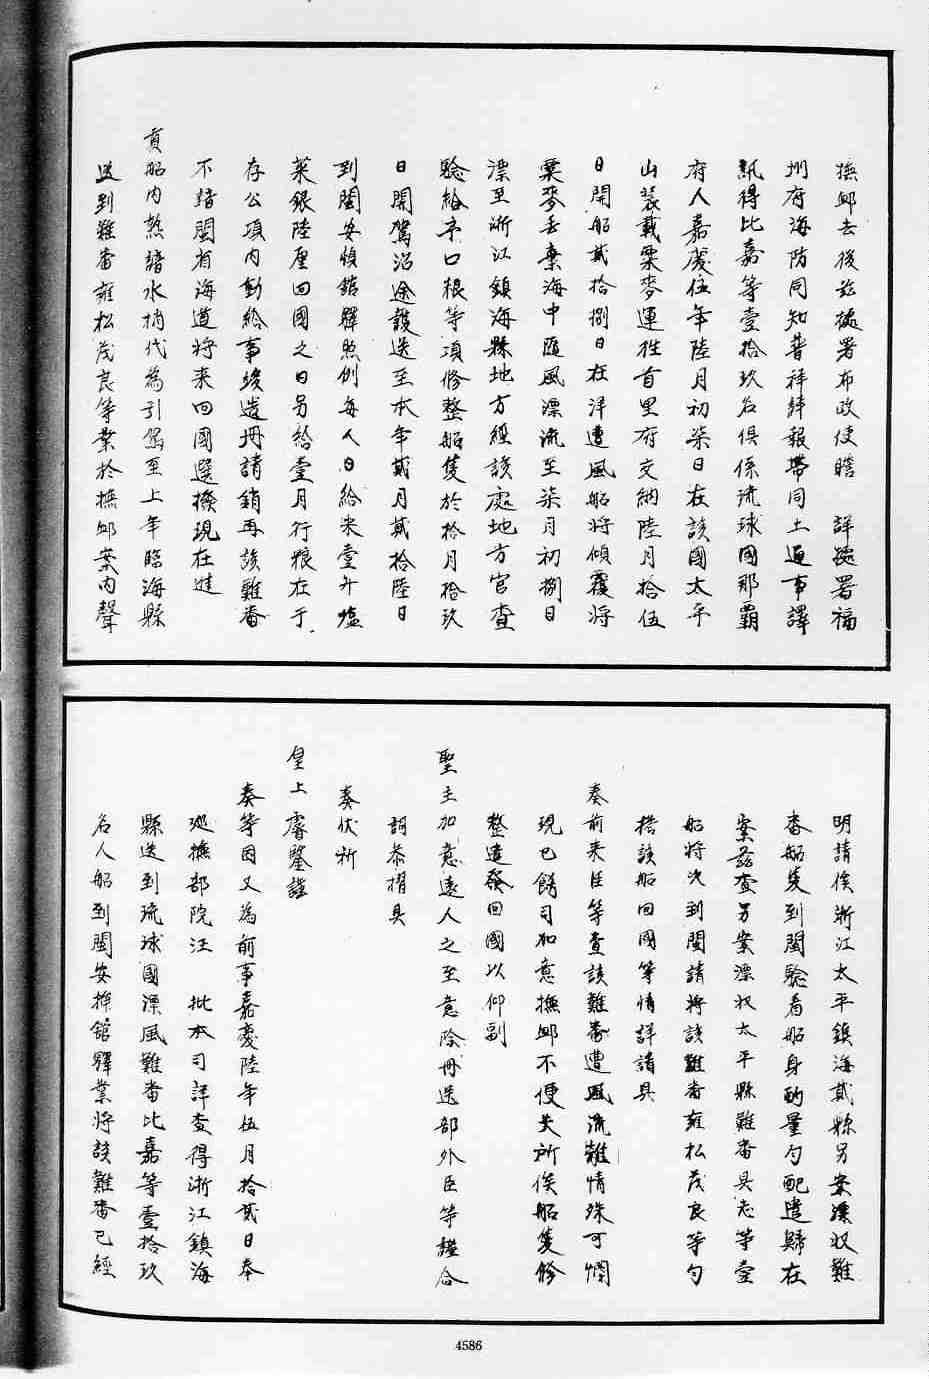 撫卹去後玆據署布政使瞻　詳據署福
州府海防同知普祥繹報帶同土通事譯
訊得比嘉等壹拾玖名俱係流球國那霸
府人嘉慶伍年陸月初柒日在該國太平
山裝載粟麥運往首里府交納陸月拾伍
日開船貳拾捌日在洋遭風船將傾覆將
粟麥丟棄海中匝風漂流至柒月初捌日
漂至浙江鎮海縣地方經該處地方官查
驗給予口粮等項修整船隻於拾月拾玖
日開駕沿途護送至本年貳月貳拾陸日
到閩安頓舘驛照例每人日給米壹升塩
菜銀陸厘回國之日另給壹月行粮在于
存公項內動給事竣造册請銷再該難番
不諳閩省海道將来回國選撥現在進
貢船內熟諳水梢代為引駕至上年臨海縣
送到難番雍松茂良等業於撫卹案內聲
明請俟浙江太平鎮海貳縣另案漂収難
番船隻到閩驗看船身酌量勻配遣歸在
案茲查另案漂収太平縣難番具志等壹
船將次到閩請將該難番雍松茂良等勻
搭該船回國等情詳請具
奏前来臣等查該難番遭風流離情殊可憫
現已飭司加意撫卹不便失所俟船隻修
整遣發回國以仰副
聖主加意遠人之至意除册送部外臣等謹合
詞恭摺具
奏伏祈
皇上睿鑒謹
奏等因又為前事嘉慶陸年伍月拾貳日奉
廵撫部院汪　批本司詳查得浙江鎮海
縣送到琉球國漂風難番比嘉等壹拾玖
名人船到閩安揷舘驛業將該難番已經
4586